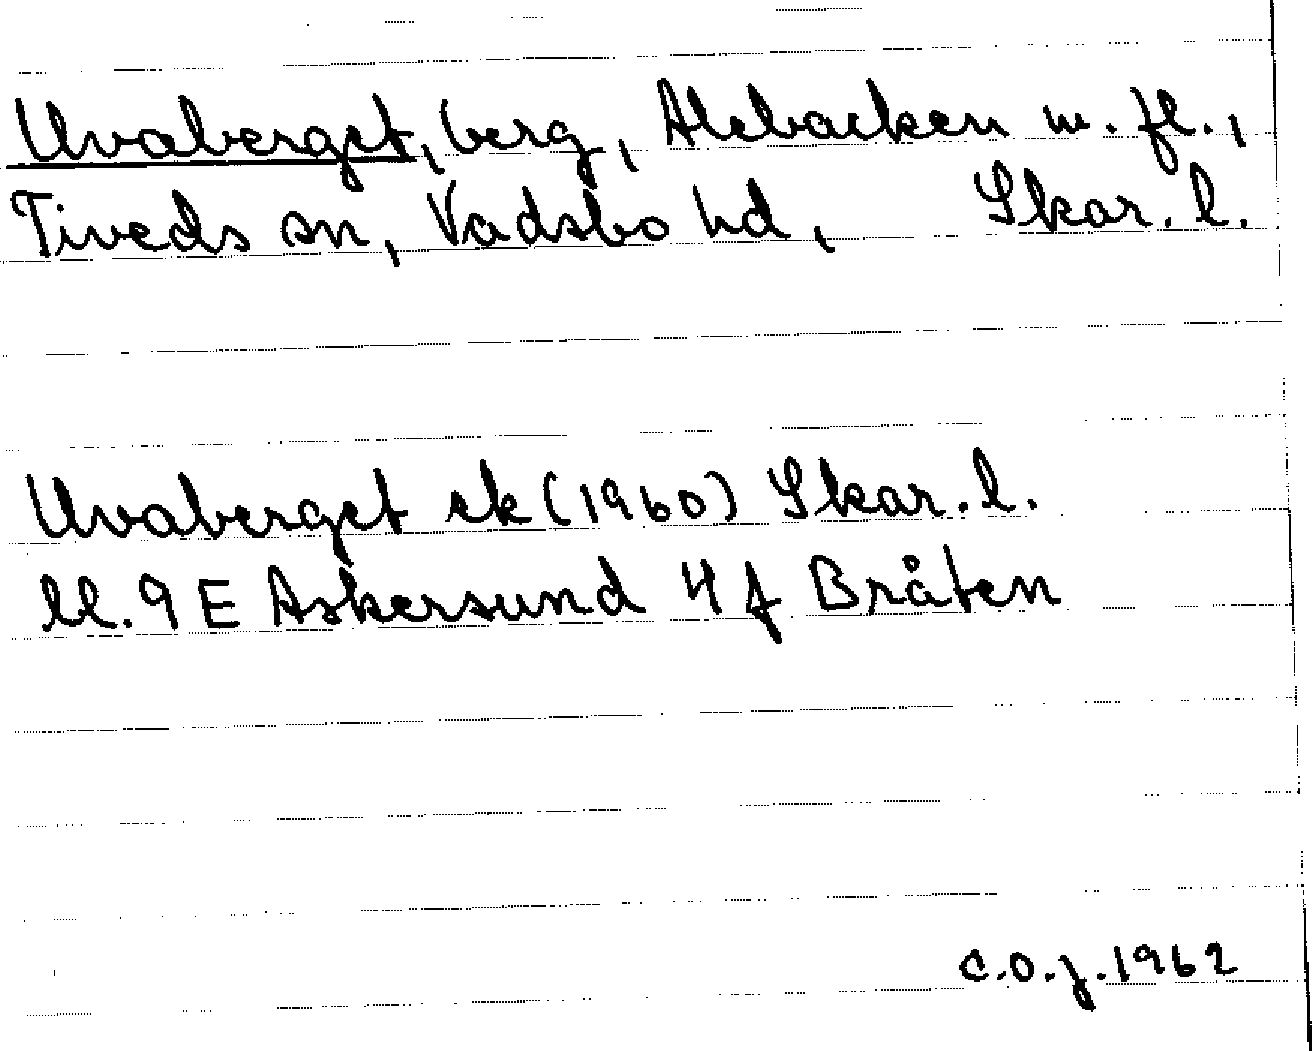 Uvaberget, berg, Alebacken m. fl.,
Tiveds sn, Vadsbo hd, Skar. l.
Uvaberget ek (1960) Skar. l.
ll. 9E Askersund 4f Bråten
C.O.J. 1962